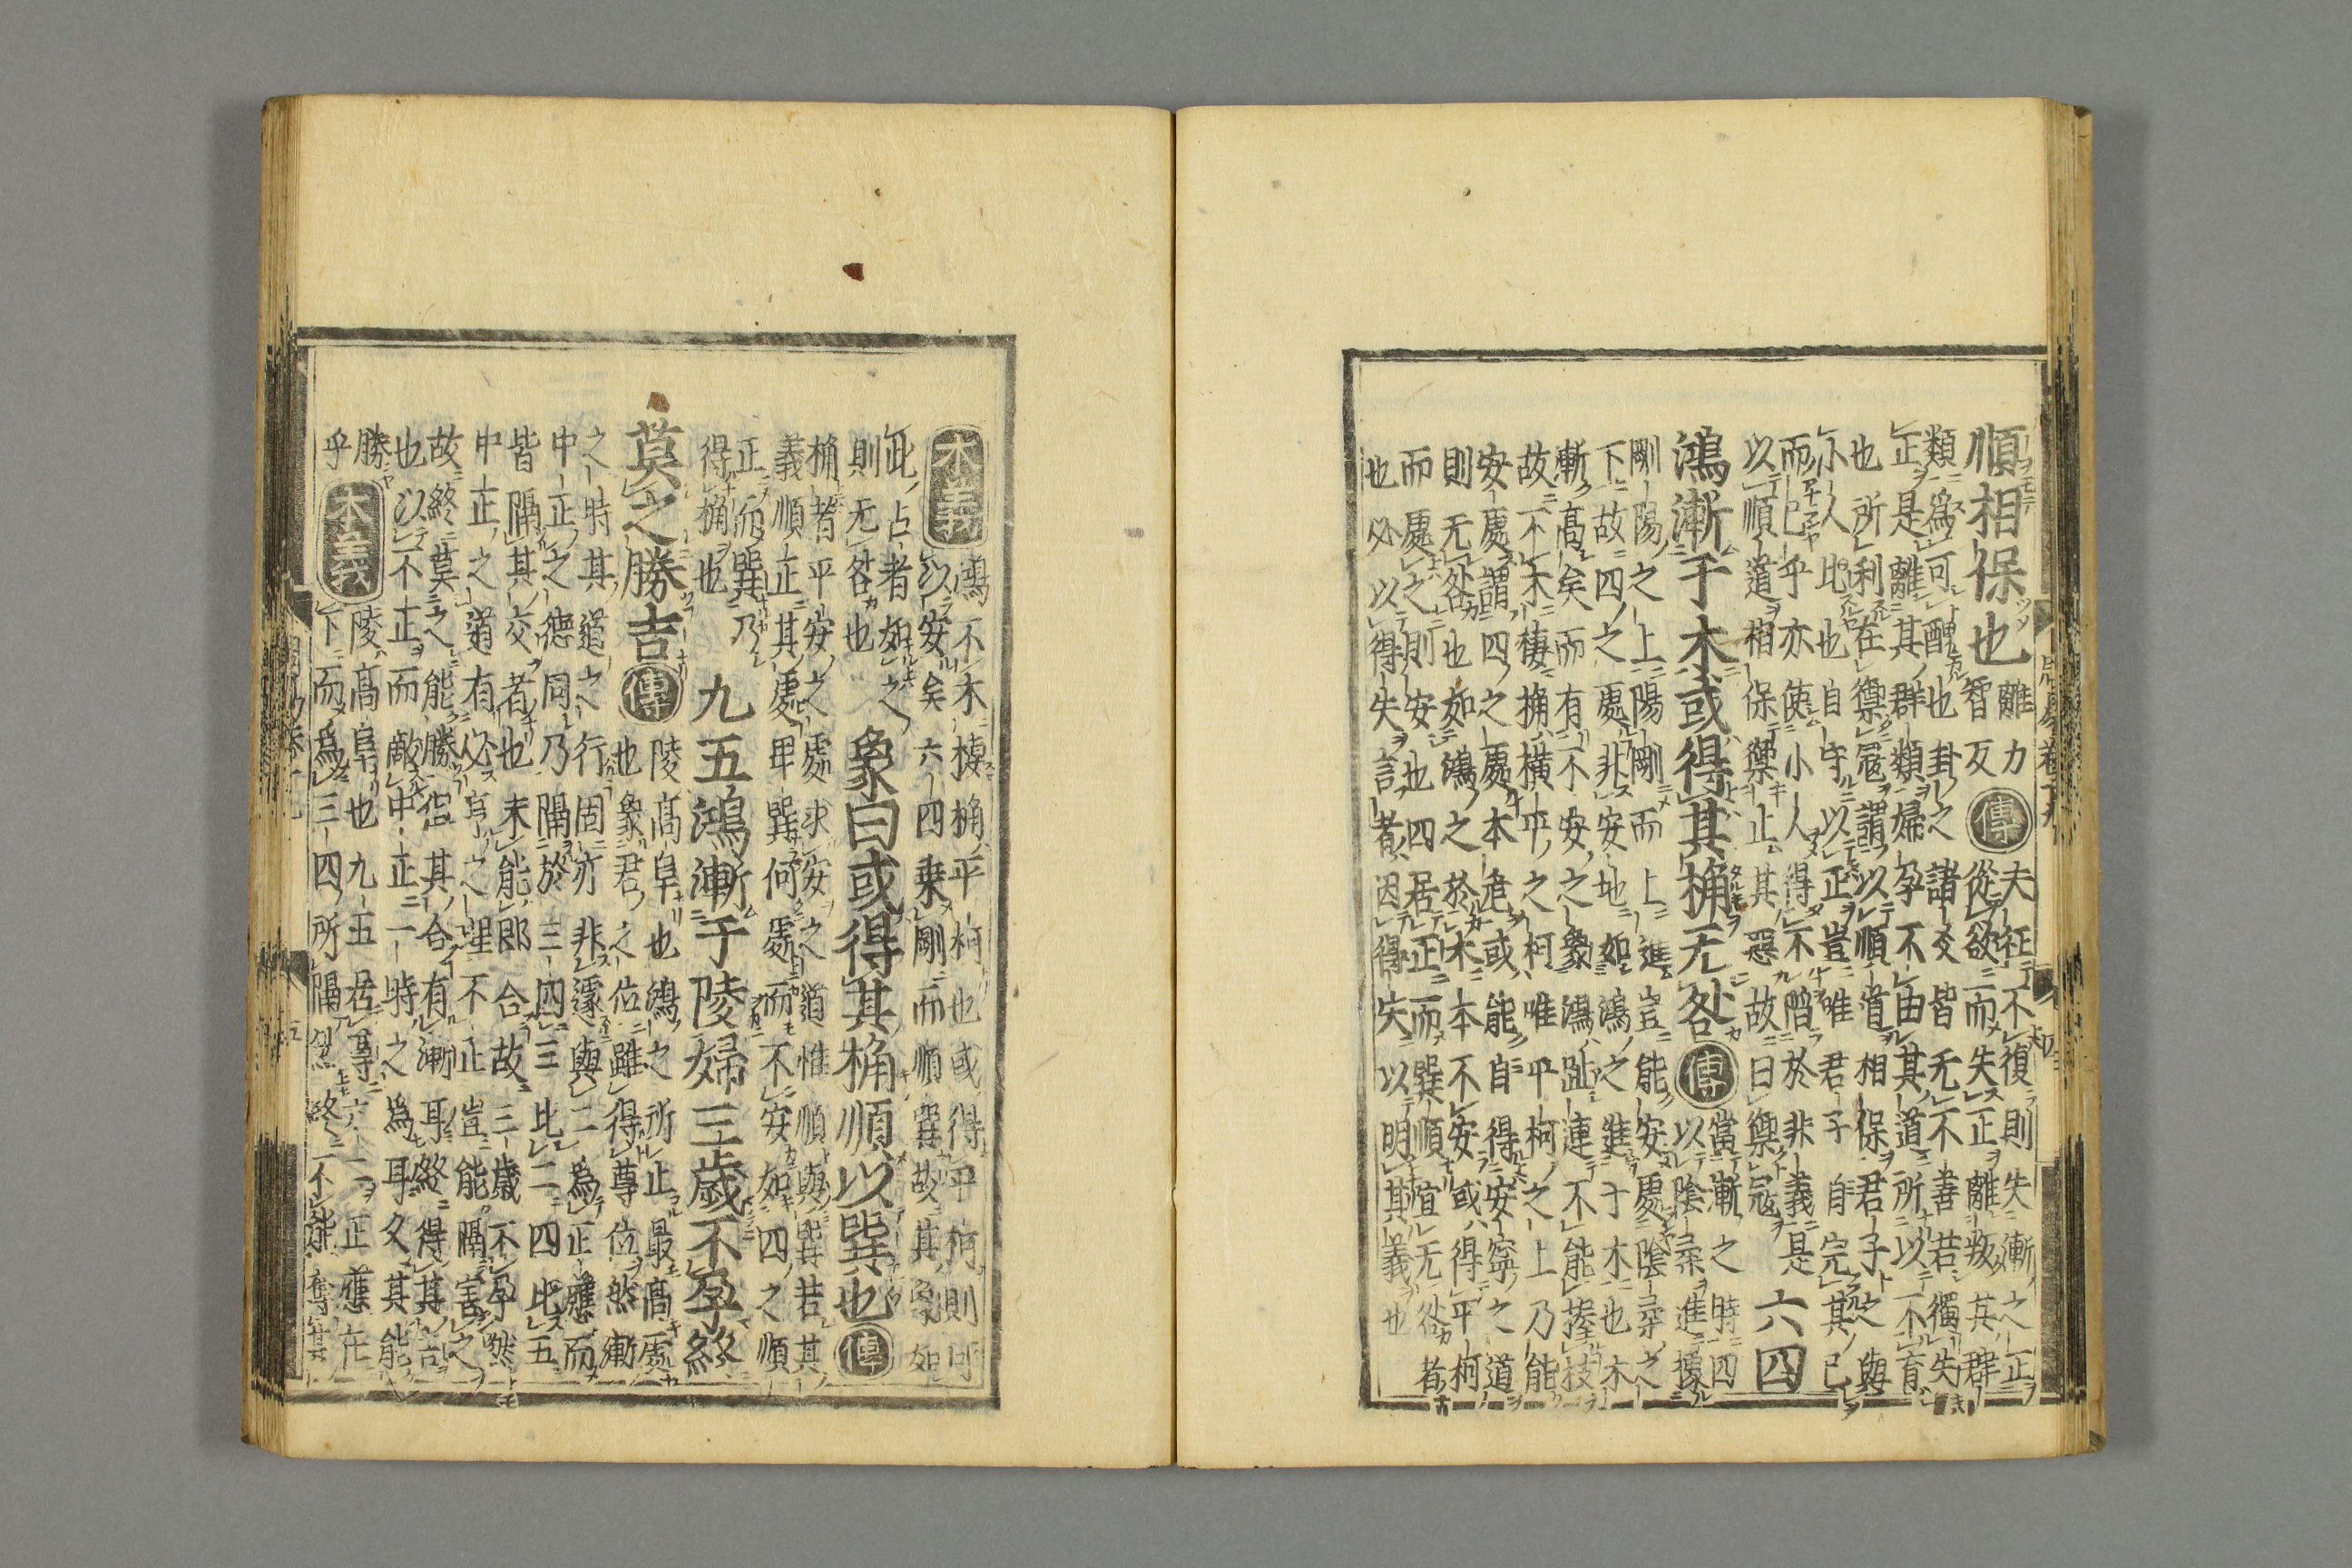 順相保也離力
智反傳夫征不復則失漸之正
從欲而失正離叛其群
類爲可醜也卦之諸爻皆无不善若獨失
正是離其群類婦孕不由其道所以不育
也所利在禦寇謂以順道相保君子之與
小人比也自守以正豈唯君子自完其己
而已乎亦使小人得不陷於非義是
以順道相保禦止其惡故曰禦寇六四
鴻漸于木或得其桷无咎傳當漸之時四
以陰柔進據
剛陽之上陽剛而上進豈能安處陰柔之
下故四之處非安地如鴻之進于木也木
漸高矣而有不安之象鴻趾連不能握枝
故不木棲桷橫平之柯唯平柯之上乃能
安處謂四之處本危或能自得安寧之道
則无咎也如鴻之於木本不安或得平柯
而處之則安也四居正而巽順宜无咎者
也必以得失言者因得失以明其義也
本義鴻不木棲桷平柯也或得平柯則可
以安矣六四乗剛而順巽故其象如
此占者如之
則无咎也象曰或得其桷順以巽也傳
桷者平安之處求安之道惟順與巽若其
義順正其處卑巽何處而不安如四之順
正而巽乃
得桷也九五鴻漸于陵婦三歲不孕終
莫之勝吉傳陵高阜也鴻之所止最高處
也象君之位雖得尊位然漸
之時其道之行固亦非遽與二爲正應而
中正之德同乃隔於三四三比二四比五
皆隔其交者也未能即合故三歲不孕然
中正之道有必亨之理不正豈能隔害之
故終莫之能勝但其合有漸耳終得其吉
也以不正而敵中正一時之爲耳久其能
勝
乎本義陵高阜也九五居尊六二正應在
下而爲三四所隔然終不能奪其